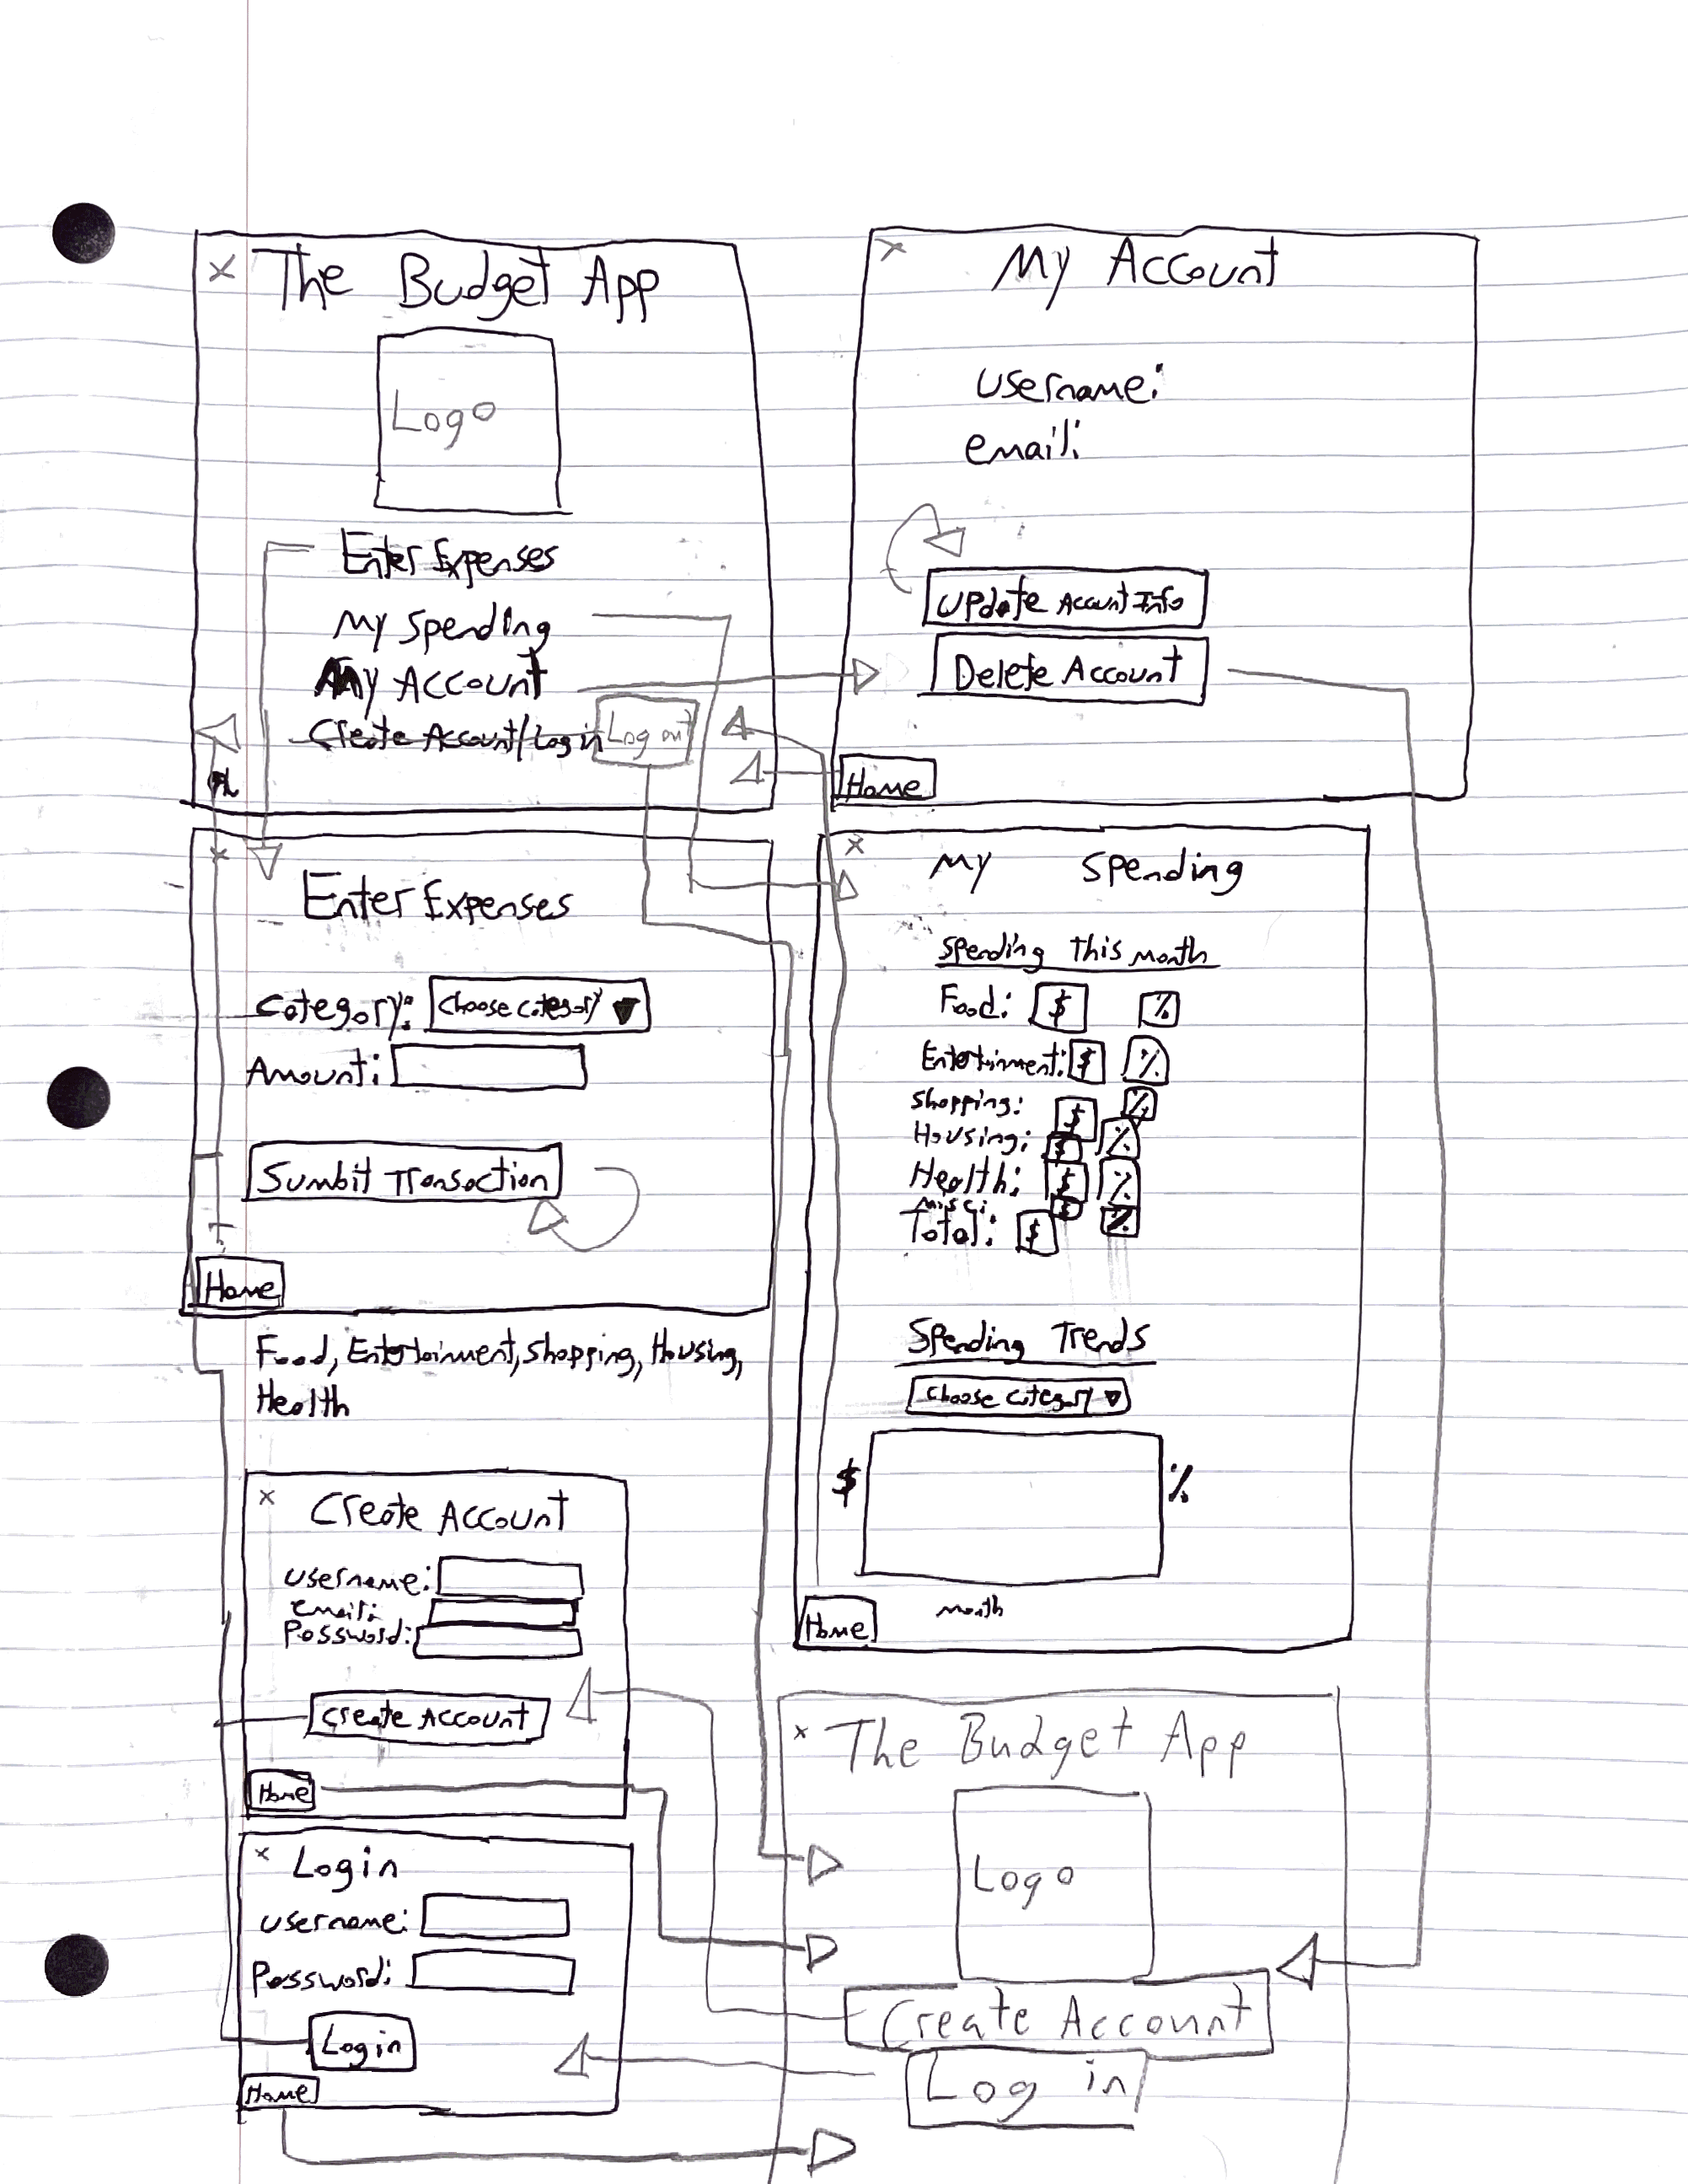 x The Budget App
Logo
Enter Expenses
My Spending
My Account
Create Account/Login
Log out
x My Account
username:
email:
Update Account Info
Delete Account
Home
x
Enter Expenses
Category: Choose category ▼
Amount:
Sumbit Transaction
Home
Food, Entertainment, Shopping, Housing,
Health
x My Spending
Spending This Month
Food: $ %
Entertainment: $ %
Shopping: $ %
Housing: $ %
Health: $ %
Misc: $
Total: $ %
Spending Trends
Choose category ▼
$ %
month
Home
x Create Account
username:
email:
Password:
Create Account
Home
x Login
username:
Password:
Login
Home
x The Budget App
Logo
Create Account
Log in